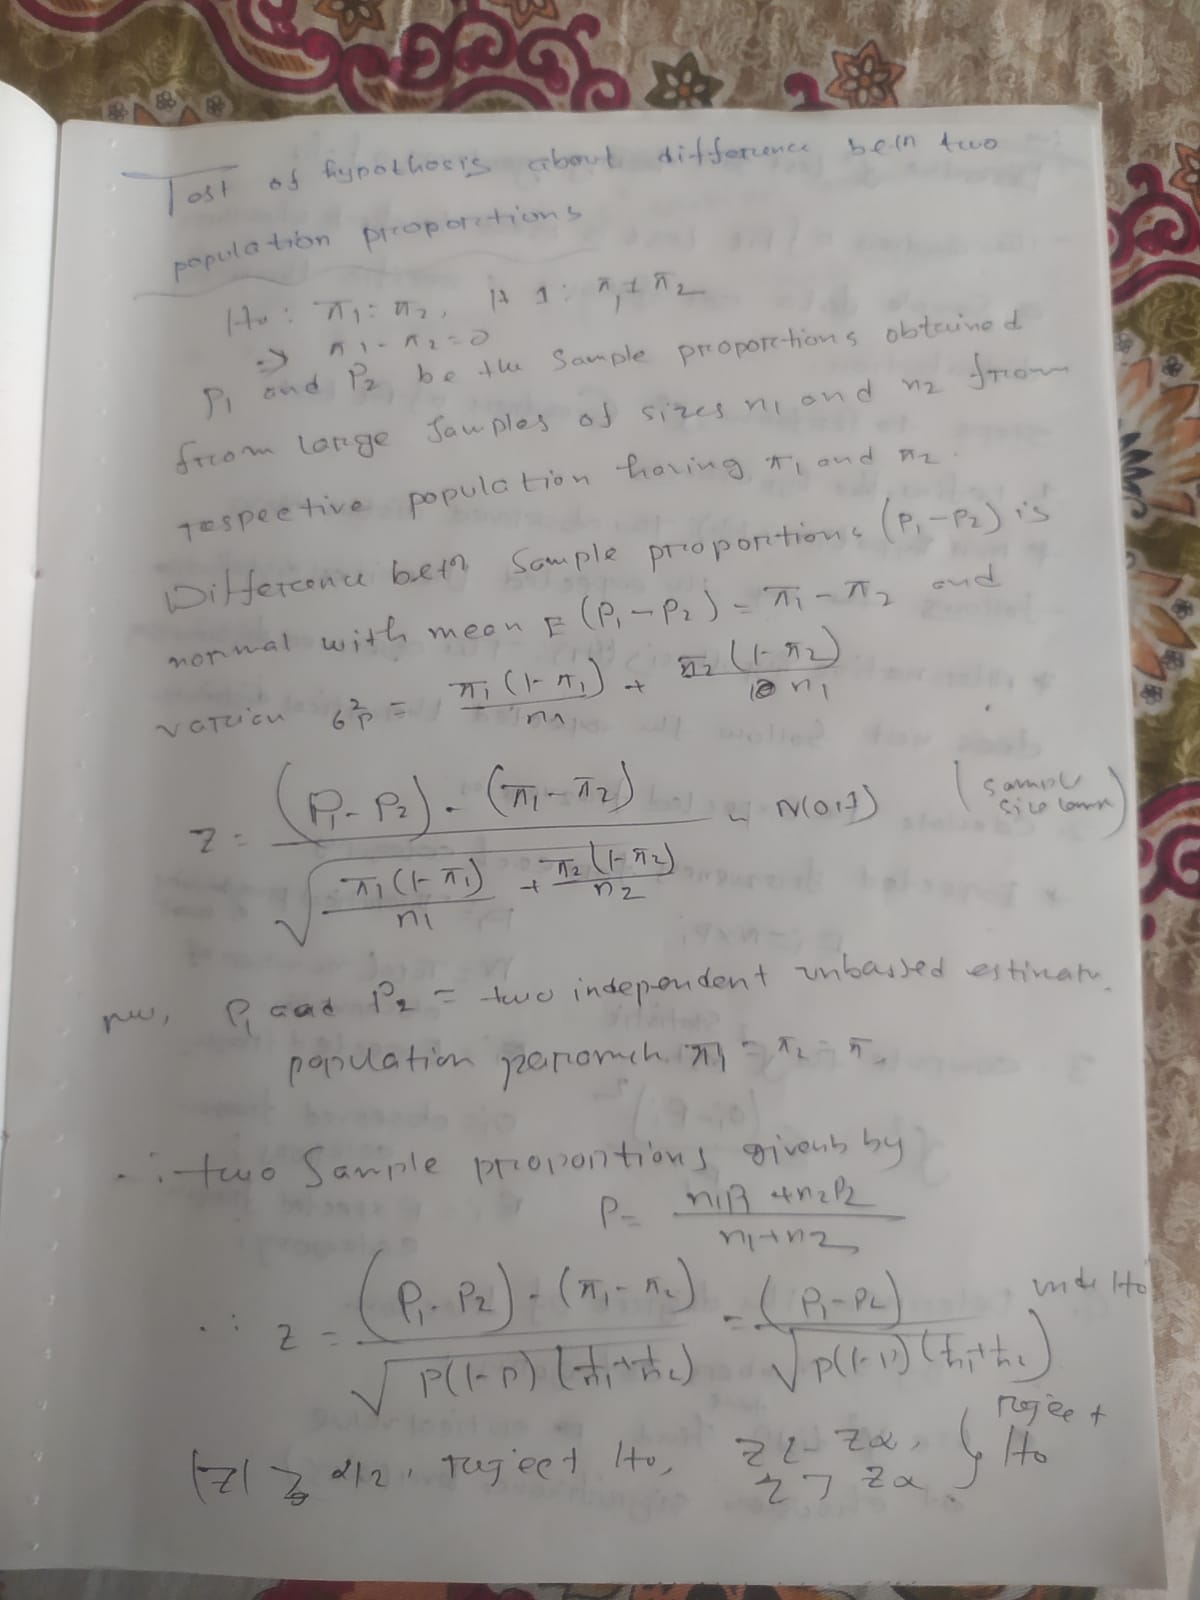 Test of hypothesis about difference betn two
population proportions
H0 : π1 = π2, H1 : π1 ± π2
=> π1 - π2 = 0
P1 and P2 be the sample proportions obtained
from large samples of sizes n1 and n2 from
respective population having π1 and π2.
Difference betn sample proportions (P1 - P2) is
normal with mean E (P1 - P2) = π1 - π2 and
σ²P = π1(1-π1)/n1 + π2(1-π2)/n1
Z = (P1 - P2) - (π1 - π2) / √(π1(1-π1)/n1 + π2(1-π2)/n2) ~ N(0,1) (sample size
P1 and P2 = two independent unbassed
population π1 = π2 = π
∴ two sample proportions by
P = n1P1 + n2P2 / n1+n2
∴ Z = (P1 - P2) - (π1 - π2) / √P(1-P)(1/n1+1/n2) = (P1 - P2) / √P(1-P)(1/n1+1/n2) H0
|Z| ≥ α/2, reject H0, Z < -Zα, Z > Zα. } reject H0